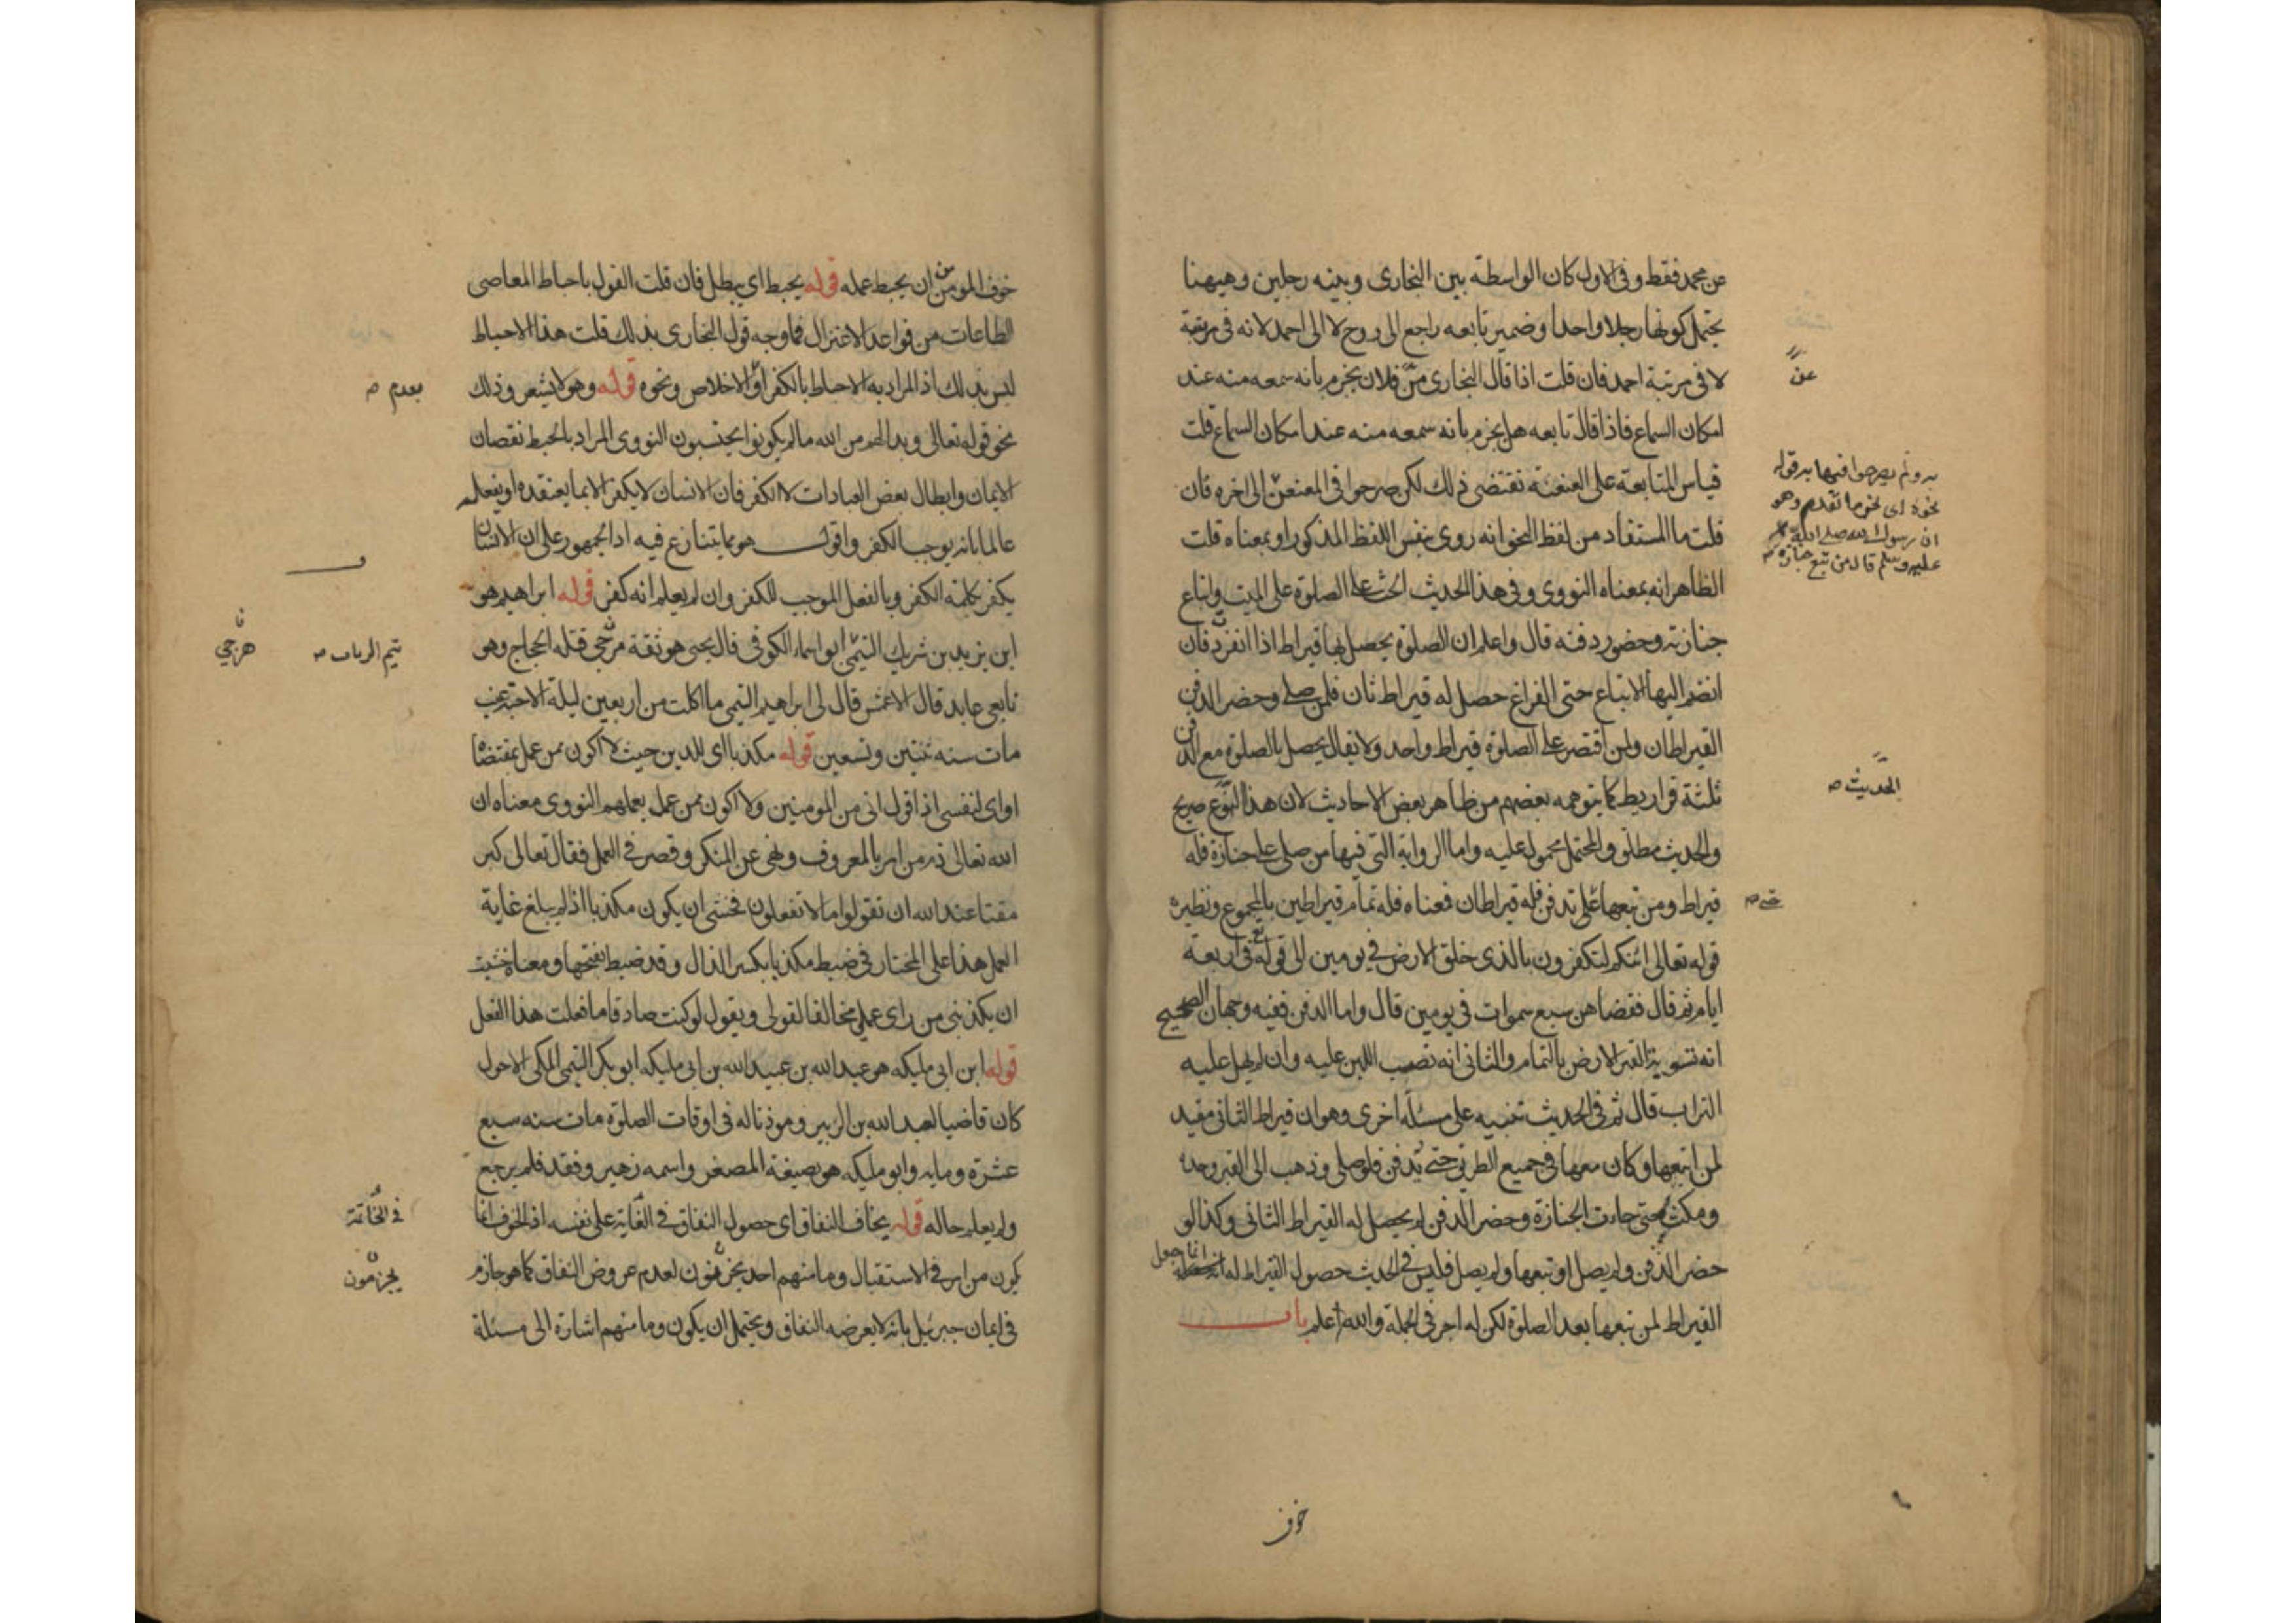 عن محمد فقط وفى الاول كان الواسطة بين البخارى وبينه رجلين وهيهنا
يحتمل كونها رجلا واحدا وضمير تابعه راجع الى روح لا الى احمد لانه فى مرتبة
لا فى مرتبة احمد فان قلت اذا قال البخارى عن فلان يجزم بانه سمعه منه عند
امكان السماع فاذا قال تابعه هل يجزم بانه سمعه منه عند امكان السماع قلت
قياس المتابعة على العنعنة تقتضى ذلك لكن صرحوا فى المعنعن الى اخره فان
قلت ما المستفاد من لفظ النحو انه روى بنفس اللفظ المذكور او بمعناه قلت
الظاهر انه بمعناه النووى وفى هذا الحديث الحث على الصلوة على الميت واتباع
جنازته وحضور دفنه قال واعلم ان الصلوة يحصل بها قيراط اذا انفرد فان
انضم اليها الاتباع حتى الفراغ حصل له قيراط ثان فلمن صلى وحضر الدفن
القيراطان ولمن اقتصر على الصلوة قيراط واحد ولا يقال يحصل بالصلوة مع الدفن
ثلثة قراريط كما يتوهمه بعضهم من ظاهر بعض الاحاديث لان هذا النوع صريح
والحديث مطلق والمحتمل محمول عليه واما الرواية التى فيها من صلى على جنازة فله
قيراط ومن تبعها حتى تدفن فله قيراطان فمعناه فله تمام قيراطين بالمجموع ونظيره
قوله تعالى ائنكم لتكفرون بالذى خلق الارض فى يومين الى قوله فى اربعة
ايام ثم قال فقضاهن سبع سموات فى يومين قال واما الدفن ففيه وجهان الصحيح
انه تسوية القبر الارض بالتمام والثانى انه نصب اللبن عليه وان لم يهل عليه
التراب قال ثم فى الحديث تنبيه على مسئلة اخرى وهو ان قيراط الثانى مقيد
لمن اتبعها وكان معها فى جميع الطريق حتى تدفن فلو صلى وذهب الى القبر وحده
ومكث حتى جاءت الجنازة وحضر الدفن لم يحصل له القيراط الثانى وكذا لو
حضر الدفن ولم يصل او تبعها ولم يصل فليس فى الحديث حصول القيراط له انما جعل
القيراط لمن تبعها بعد الصلوة لكن له اجر فى الجملة والله اعلم باب
عن
به ولم يصرحوا فيها به قوله
نحوه اى نحو ما تقدم وهو
ان رسول الله صلى الله
عليه وسلم قال من تبع جنازة
الحديث صح
حتى صح
خوف
خوف المومن من ان يحبط عمله قوله يحبط اى يبطل فان قلت القول باحباط المعاصى
الطاعات من قواعد الاعتزال فما وجه قول البخارى بذلك قلت هذا الاحباط
ليس بذلك اذ المراد به الاحباط بالكفر او الاخلاص ونحوه قوله وهو لا يشعر وذلك
نحو قوله تعالى وبدا لهم من الله ما لم يكونوا يحتسبون النووى المراد بالحبط نقصان
الايمان وابطال بعض العبادات لا الكفر فان الانسان لا يكفر الا بما يعتقده او يفعله
عالما بانه يوجب الكفر واقول هو مما يتنازع فيه اذ الجمهور على ان الانسان
يكفر بكلمة الكفر وبالفعل الموجب للكفر وان لم يعلم انه كفر قوله ابراهيم هو
ابن يزيد بن شريك التيمى ابو اسماء الكوفى قال يحيى هو ثقة مرجى قتله الحجاج وهو
تابعى عابد قال الاعمش قال لى ابراهيم التيمى ما اكلت من اربعين ليلة الا حبة عنب
مات سنه ثنتين وتسعين قوله مكذبا اى للدين حيث لا اكون ممن عمل بمقتضاه
او اى لنفسى اذ اقول انى من المومنين ولا اكون ممن عمل بعملهم النووى معناه ان
الله تعالى ذم من امر بالمعروف ونهى عن المنكر وقصر فى العمل فقال تعالى كبر
مقتا عند الله ان تقولوا ما لا تفعلون فخشى ان يكون مكذبا اذ لم يبلغ غاية
العمل هذا على المختار فى ضبط مكذبا بكسر الذال وقد ضبط بفتحها ومعناه خشيت
ان يكذبنى من راى عملى مخالفا لقولى ويقول لو كنت صادقا ما فعلت هذا الفعل
قوله ابن ابى مليكه هو عبد الله بن عبيد الله بن ابى مليكه ابو بكر التيمى المكى الاحول
كان قاضيا لعبد الله بن الزبير وموذنا له فى اوقات الصلوة مات سنه سبع
عشرة ومايه وابو مليكه هو بصيغة المصغر واسمه زهير وفقد فلم يرجع
ولم يعلم حاله قوله يخاف النفاق اى حصول النفاق فى الغاية على نفسه اذ الخوف انما
يكون من امر فى الاستقبال وما منهم احد يجزمون لعدم عروض النفاق كما هو جازم
فى ايمان جبرئيل بانه لا يعرضه النفاق ويحتمل ان يكون وما منهم اشارة الى مسئلة
بعدم صح
تيم الرباب صح
مرجى
فى الخاتمة
يجزمون